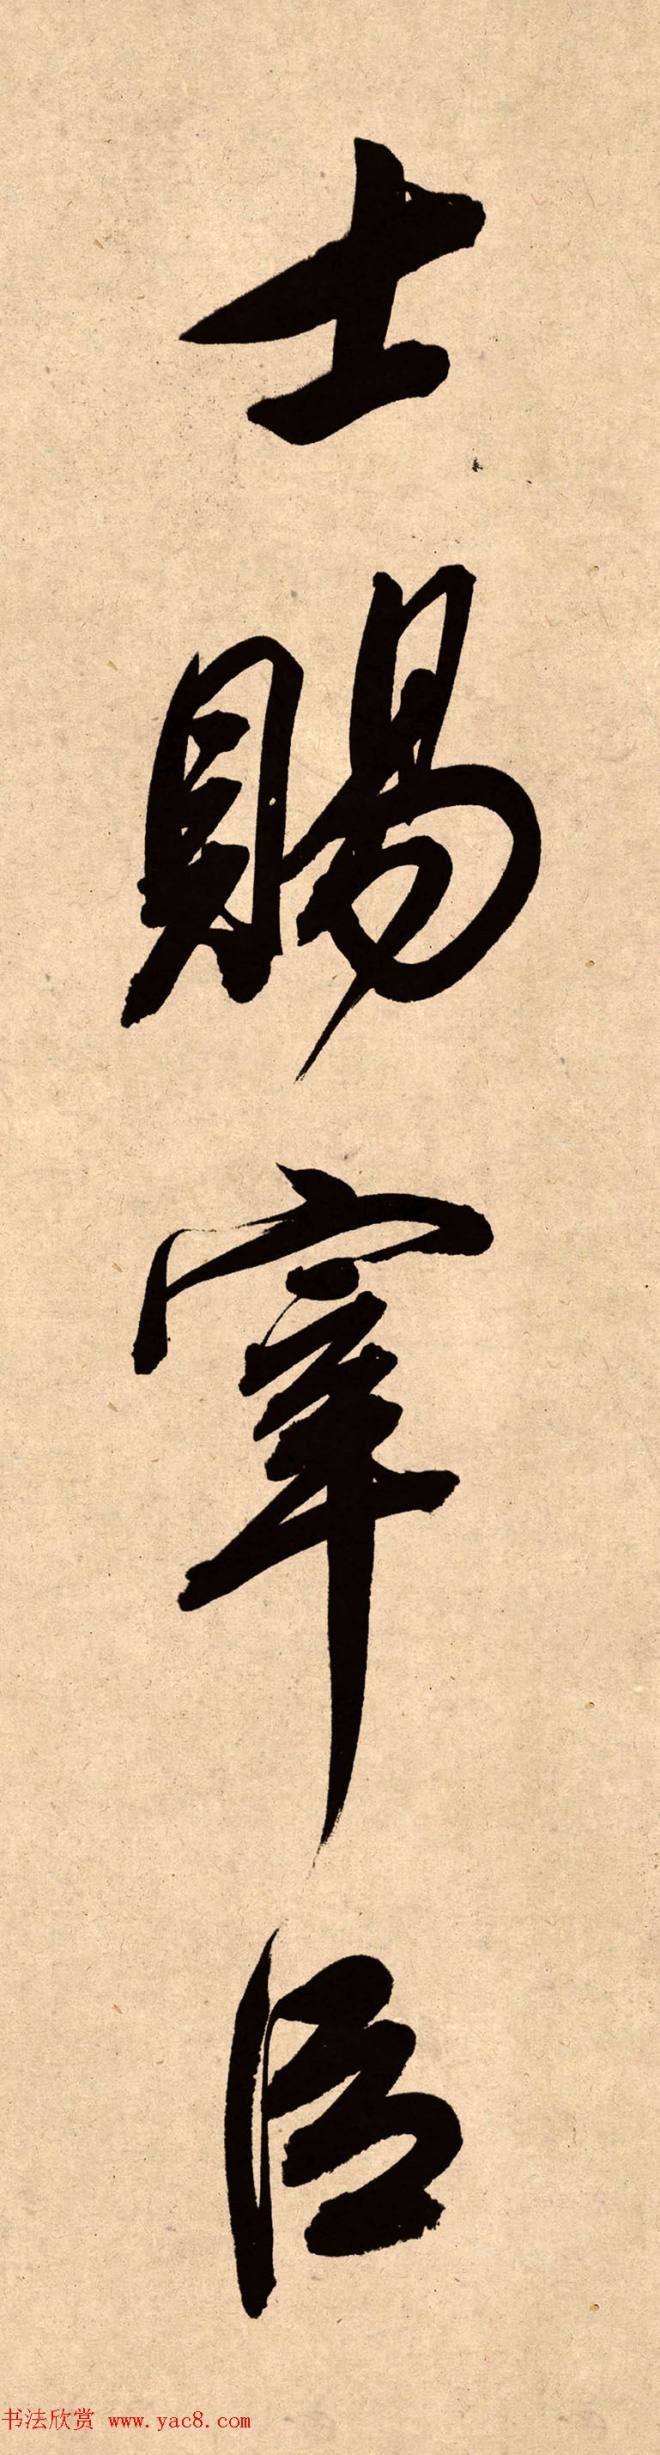 士賜宰臣
书法欣赏 www.yac8.com